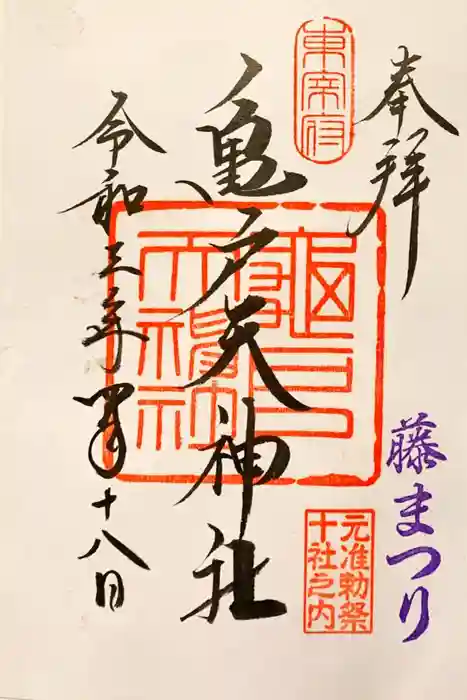 奉拝
藤まつり
東宰府
亀戸天神社
龜戸
天神社
元准勅祭
十社之内
令和三年四月十八日